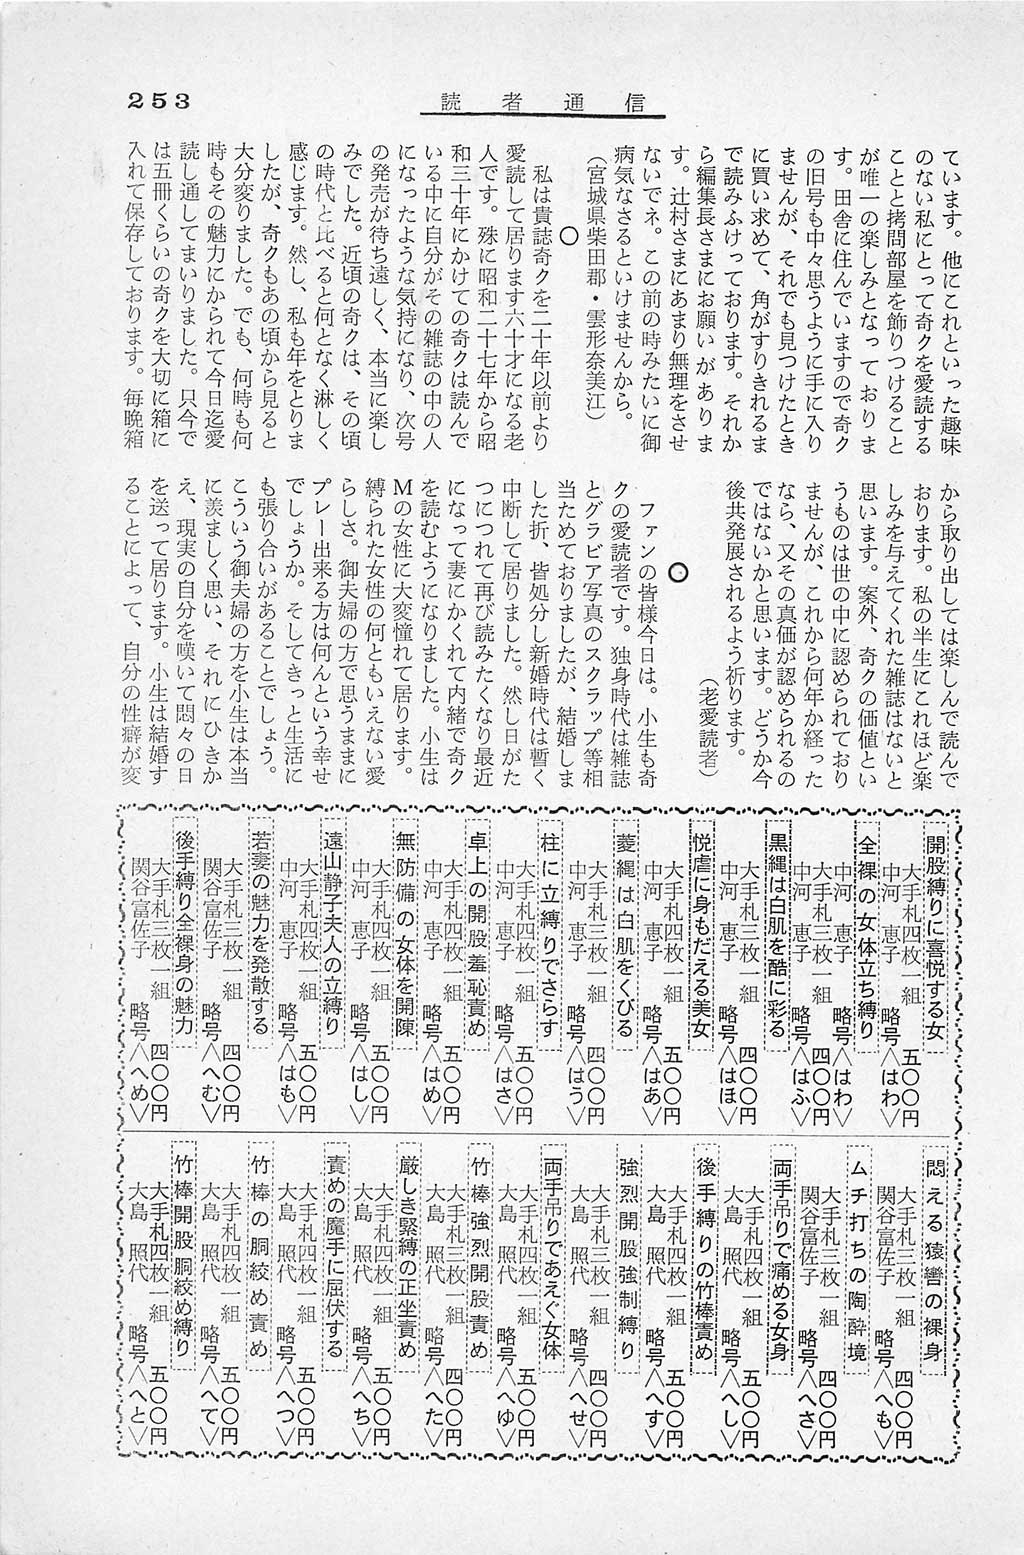 253
読者通信
ています。他にこれといった趣味
のない私にとって奇クを愛読する
ことと拷問部屋を飾りつけること
が唯一の楽しみとなっておりま
す。田舎に住んでいますので奇ク
の旧号も中々思うように手に入り
ませんが、それでも見つけたとき
に買い求めて、角がすりきれるま
で読みふけっております。それか
ら編集長さまにお願いがありま
す。辻村さまにあまり無理をさせ
ないでネ。この前の時みたいに御
病気なさるといけませんから。
(宮城県柴田郡・雲形奈美江)
○
私は貴誌奇クを二十年以前より
愛読して居ります六十才になる老
人です。殊に昭和二十七年から昭
和三十年にかけての奇クは読んで
いる中に自分がその雑誌の中の人
になったような気持になり、次号
の発売が待ち遠しく、本当に楽し
みでした。近頃の奇クは、その頃
の時代と比べると何となく淋しく
感じます。然し、私も年をとりま
したが、奇クもあの頃から見ると
大分変りました。でも、何時も何
時もその魅力にかられて今日迄愛
読し通してまいりました。只今で
は五冊くらいの奇クを大切に箱に
入れて保存しております。毎晩箱
から取り出しては楽しんで読んで
おります。私の半生にこれほど楽
しみを与えてくれた雑誌はないと
思います。案外、奇クの価値とい
うものは世の中に認められており
ませんが、これから何年か経った
なら、又その真価が認められるの
ではないかと思います。どうか今
後共発展されるよう祈ります。
(老愛読者)
○
ファンの皆様今日は。小生も奇
クの愛読者です。独身時代は雑誌
とグラビア写真のスクラップ等相
当ためておりましたが、結婚しま
した折、皆処分し新婚時代は暫く
中断して居りました。然し日がた
つにつれて再び読みたくなり最近
になって妻にかくれて内緒で奇ク
を読むようになりました。小生は
Mの女性に大変憧れて居ります。
縛られた女性の何ともいえない愛
らしさ。御夫婦の方で思うままに
プレー出来る方は何んという幸せ
でしょうか。そしてきっと生活に
も張り合いがあることでしょう。
こういう御夫婦の方を小生は本当
に羨ましく思い、それにひきか
え、現実の自分を嘆いて悶々の日
を送って居ります。小生は結婚す
ることによって、自分の性癖が変
開股縛りに喜悦する女
大手札四枚一組 五〇〇円
中河 恵子 略号〈はわ〉
全裸の女体立ち縛り
中河 恵子 略号〈はわ〉
大手札三枚一組 四〇〇円
中河 恵子 略号〈はふ〉
黒縄は白肌を酷に彩る
大手札三枚一組 四〇〇円
中河 恵子 略号〈はほ〉
悦虐に身もだえる美女
大手札四枚一組 五〇〇円
中河 恵子 略号〈はあ〉
菱縄は白肌をくびる
大手札三枚一組 四〇〇円
中河 恵子 略号〈はう〉
柱に立縛りでさらす
大手札四枚一組 五〇〇円
中河 恵子 略号〈はさ〉
卓上の開股羞恥責め
大手札四枚一組 五〇〇円
中河 恵子 略号〈はめ〉
無防備の女体を開陳
大手札四枚一組 五〇〇円
中河 恵子 略号〈はし〉
遠山静子夫人の立縛り
大手札四枚一組 五〇〇円
中河 恵子 略号〈はも〉
若妻の魅力を発散する
大手札三枚一組 四〇〇円
関谷富佐子 略号〈へむ〉
後手縛り全裸身の魅力
大手札三枚一組 四〇〇円
関谷富佐子 略号〈へめ〉
悶える猿轡の裸身
大手札三枚一組 四〇〇円
関谷富佐子 略号〈へも〉
ムチ打ちの陶酔境
大手札三枚一組 四〇〇円
関谷富佐子 略号〈へさ〉
両手吊りで痛める女身
大手札四枚一組 五〇〇円
大島 照代 略号〈へし〉
後手縛りの竹棒責め
大手札四枚一組 五〇〇円
大島 照代 略号〈へす〉
強烈開股強制縛り
大手札三枚一組 四〇〇円
大島 照代 略号〈へせ〉
両手吊りであえぐ女体
大手札四枚一組 五〇〇円
大島 照代 略号〈へゆ〉
竹棒強烈開股責め
大手札三枚一組 四〇〇円
大島 照代 略号〈へた〉
厳しき緊縛の正坐責め
大手札四枚一組 五〇〇円
大島 照代 略号〈へち〉
責めの魔手に屈伏する
大手札四枚一組 五〇〇円
大島 照代 略号〈へつ〉
竹棒の胴絞め責め
大手札四枚一組 五〇〇円
大島 照代 略号〈へて〉
竹棒開股胴絞め縛り
大手札四枚一組 五〇〇円
大島 照代 略号〈へと〉